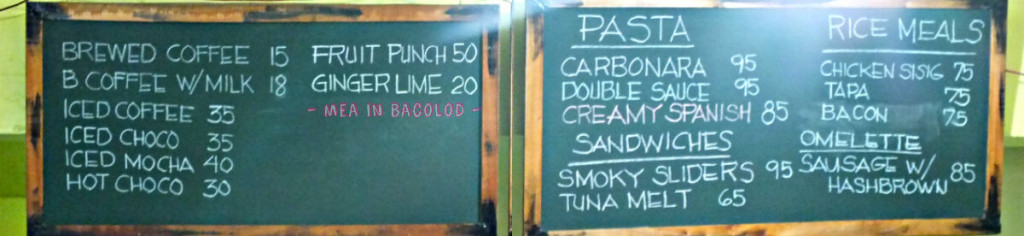 BREWED COFFEE 15
B. COFFEE W/MILK 18
ICED COFFEE 35
ICED CHOCO 35
ICED MOCHA 40
HOT CHOCO 30
FRUIT PUNCH 50
GINGER LIME 20
- MEA IN BACOLOD -
PASTA
CARBONARA 95
DOUBLE SAUCE 95
CREAMY SPANISH 85
SANDWICHES
SMOKY SLIDERS 95
TUNA MELT 65
RICE MEALS
CHICKEN SISIG 75
TAPA 75
BACON 75
OMELETTE
SAUSAGE W/
HASHBROWN 85